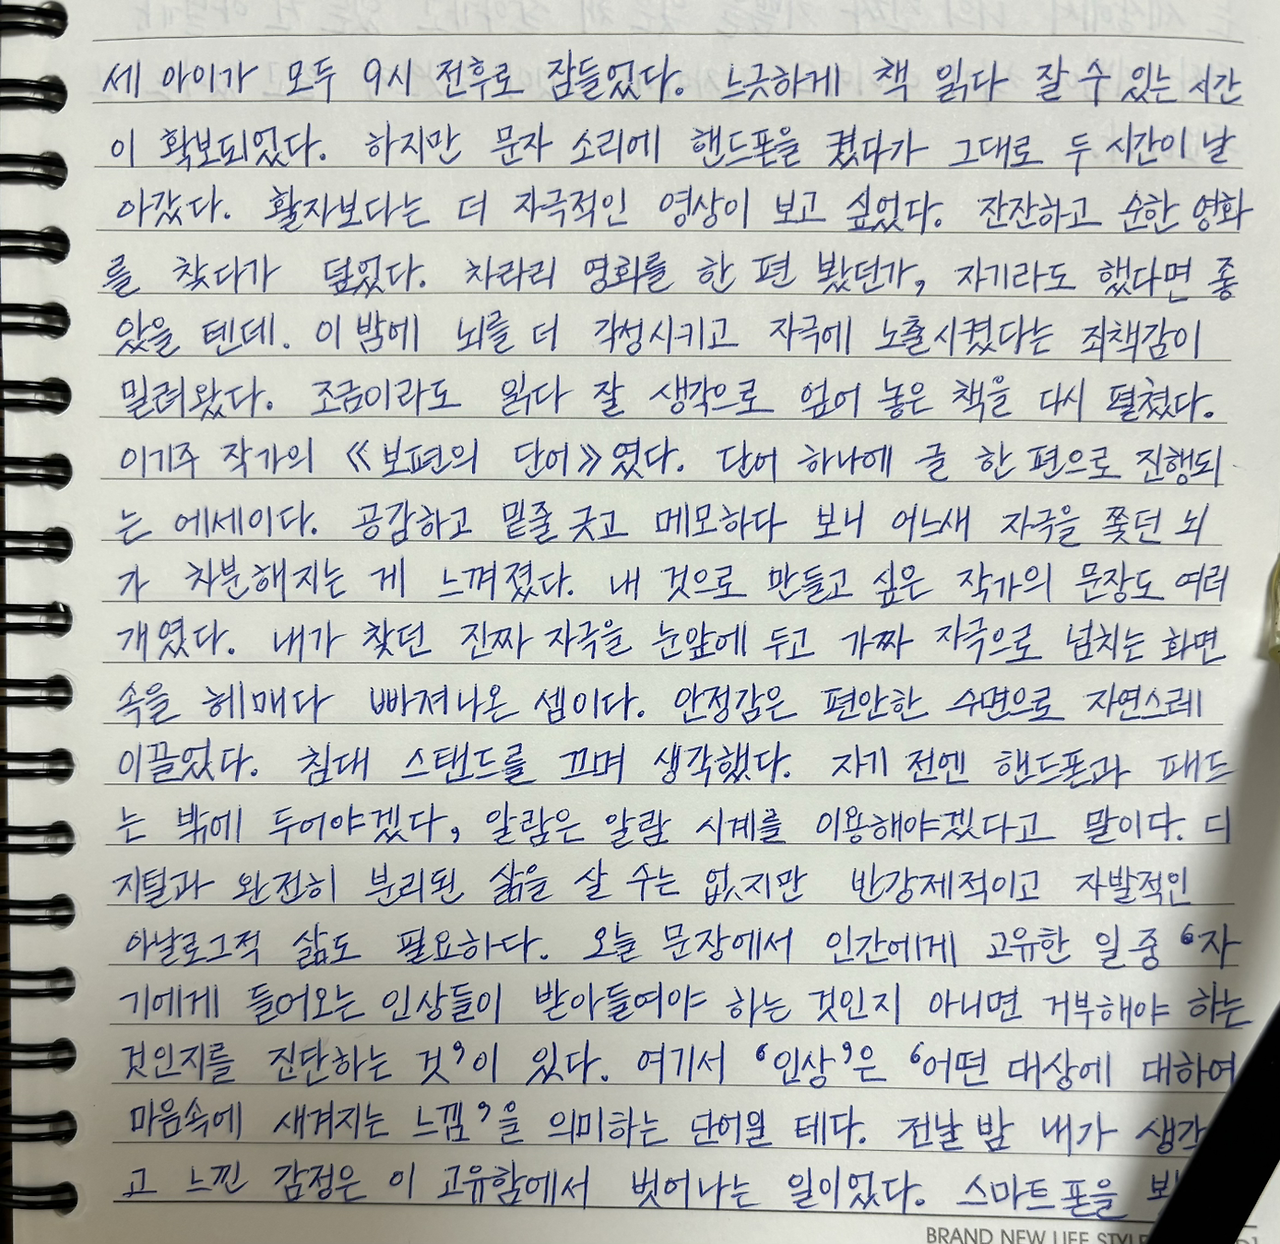 세 아이가 모두 9시 전후로 잠들었다. 느긋하게 책 읽다 잘 수 있는 시간
이 확보되었다. 하지만 문자 소리에 핸드폰을 켰다가 그대로 두 시간이 날
아갔다. 활자보다는 더 자극적인 영상이 보고 싶었다. 잔잔하고 순한 영화
를 찾다가 덮었다. 차라리 영화를 한 편 봤던가, 자기라도 했다면 좋
았을 텐데. 이 밤에 뇌를 더 각성시키고 자극에 노출시켰다는 죄책감이
밀려왔다. 조금이라도 읽다 잘 생각으로 엎어 놓은 책을 다시 펼쳤다.
이기주 작가의 《보편의 단어》였다. 단어 하나에 글 한 편으로 진행되
는 에세이다. 공감하고 밑줄 긋고 메모하다 보니 어느새 자극을 쫓던 뇌
가 차분해지는 게 느껴졌다. 내 것으로 만들고 싶은 작가의 문장도 여러
개였다. 내가 찾던 진짜 자극을 눈앞에 두고 가짜 자극으로 넘치는 화면
속을 헤매다 빠져나온 셈이다. 안정감은 편안한 수면으로 자연스레
이끌었다. 침대 스탠드를 끄며 생각했다. 자기 전엔 핸드폰과 패드
는 밖에 두어야겠다, 알람은 알람 시계를 이용해야겠다고 말이다. 디
지털과 완전히 분리된 삶을 살 수는 없지만 반강제적이고 자발적인
아날로그적 삶도 필요하다. 오늘 문장에서 인간에게 고유한 일 중 ‘자
기에게 들어오는 인상들이 받아들여야 하는 것인지 아니면 거부해야 하는
것인지를 진단하는 것’이 있다. 여기서 ‘인상’은 ‘어떤 대상에 대하여
마음속에 새겨지는 느낌’을 의미하는 단어일 테다. 전날 밤 내가
고 느낀 감정은 이 고유함에서 벗어나는 일이었다. 스마트폰을
BRAND NEW LIFE STYLE